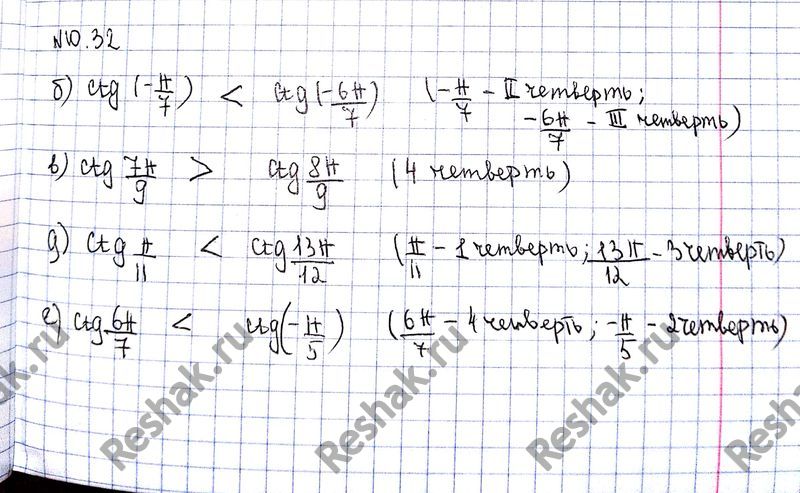 №10.32
б) ctg (-π/7) < ctg (-6π/7) (-π/7 - II четверть;
-6π/7 - III четверть)
в) ctg 7π/9 > ctg 8π/9 (4 четверть)
д) ctg π/11 < ctg 13π/12 (π/11 - 1 четверть; 13π/12 - 3 четверть)
е) ctg 6π/7 < ctg (-π/5) (6π/7 - 4 четверть; -π/5 - 2 четверть)
Reshak.ru
Reshak.ru
Reshak.ru
Reshak.ru